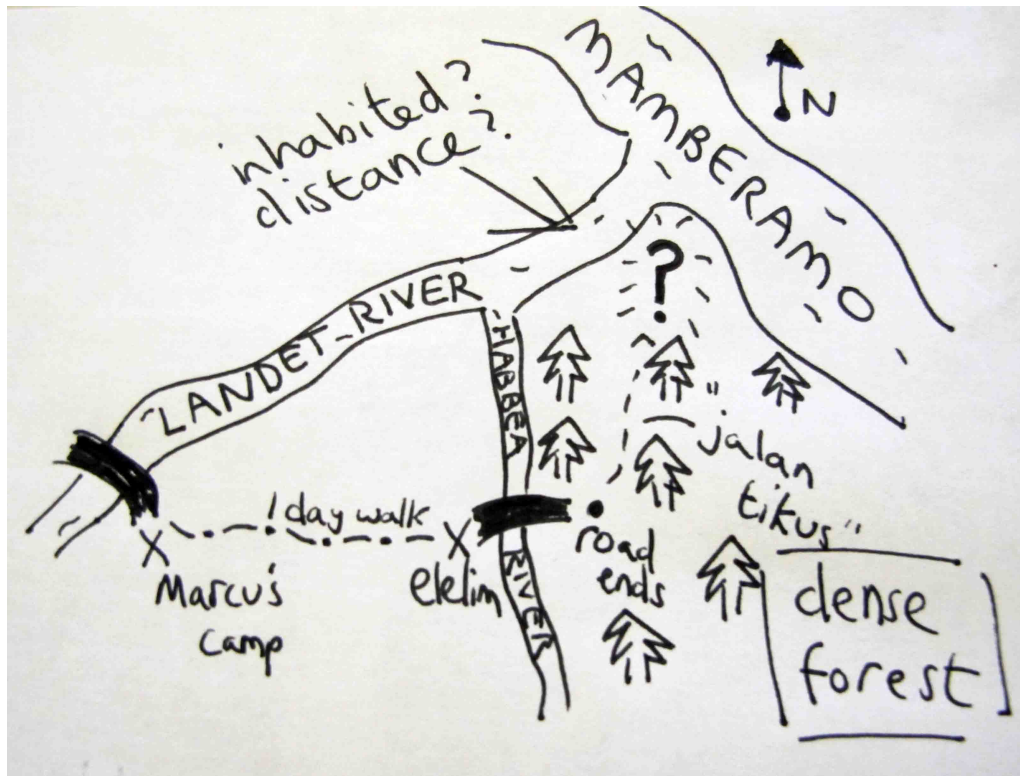 MAMBERAMO
N
inhabited?
distance?
?
LANDET RIVER
HABBEA
RIVER
"jalan
tikus"
1 day walk
Marcus
camp
elelim
road
ends
dense
forest